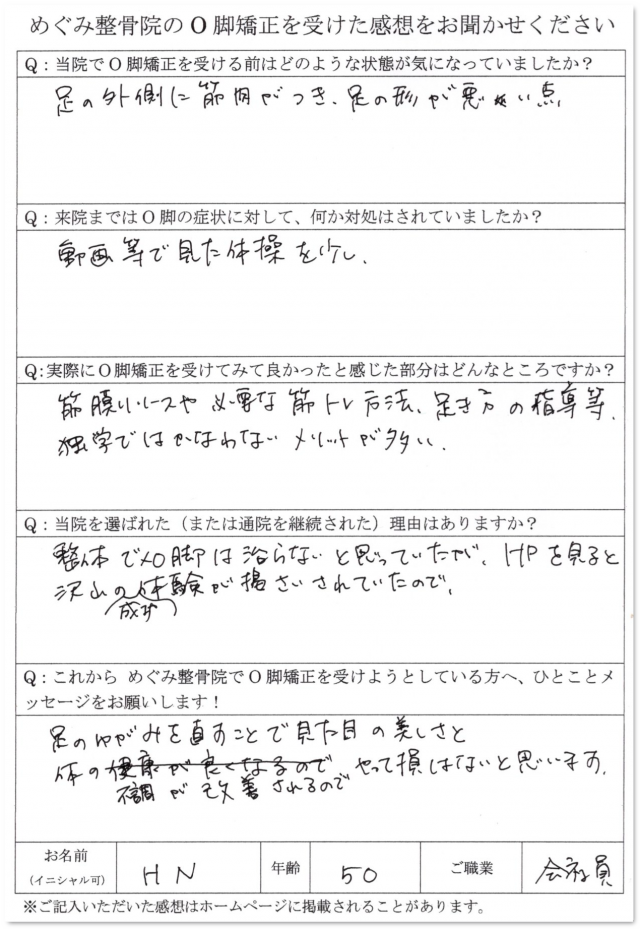 めぐみ整骨院のO脚矯正を受けた感想をお聞かせください
Q：当院でO脚矯正を受ける前はどのような状態が気になっていましたか？
足の外側に筋肉がつき、足の形が悪い点
Q：来院まではO脚の症状に対して、何か対処はされていましたか？
動画等で見た体操を少し.
Q:実際にO脚矯正を受けてみて良かったと感じた部分はどんなところですか？
筋膜リリースや必要な筋トレ方法、歩き方の指導等.
独学ではかなわないメリットが多い.
Q：当院を選ばれた（または通院を継続された）理由はありますか？
整体でO脚は治らないと思っていたが、HPを見ると
沢山の体験が掲さいされていたので、
成功
Q：これから めぐみ整骨院でO脚矯正を受けようとしている方へ、ひとことメ
ッセージをお願いします！
足のゆがみを直すことで見た目の美しさと
体の健康が良くなるので やって損はないと思います.
不調が改善されるので
お名前
（イニシャル可）
HN
年齢
50
ご職業
会社員
※ご記入いただいた感想はホームページに掲載されることがあります。